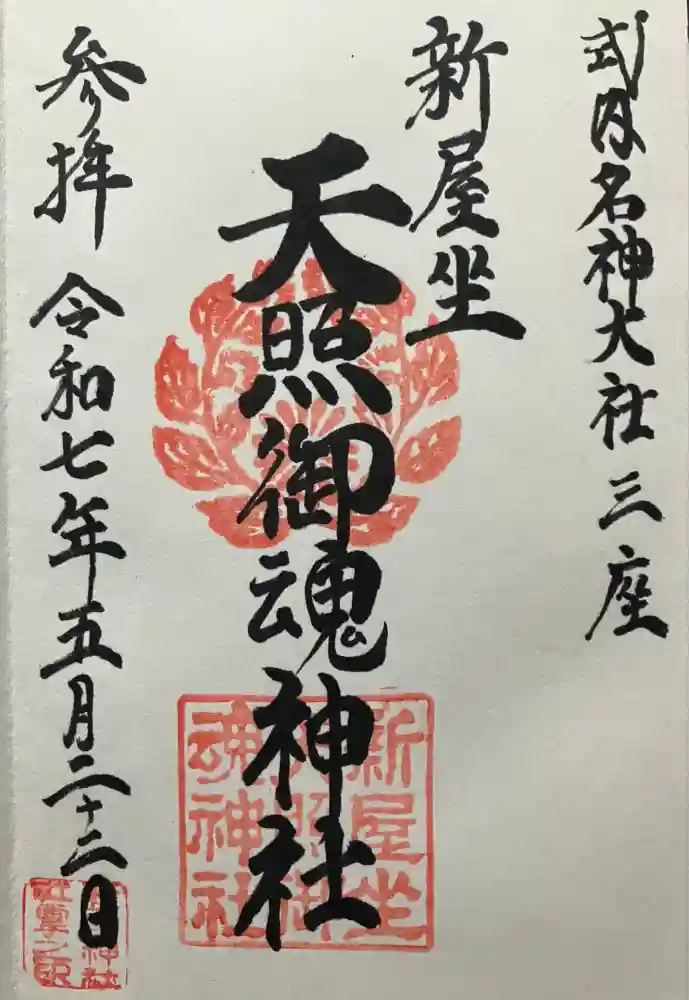 式内名神大社三座
新屋坐
天照御魂神社
参拝 令和七年五月二十二日
新屋坐
天照御
魂神社